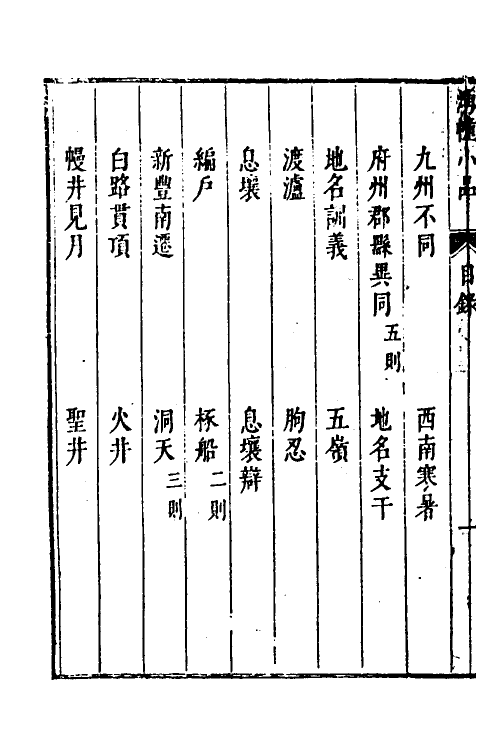 湧幢小品
目錄
九州不同　西南寒暑
府州郡縣異同五則　地名支干
地名訓義　五嶺
渡瀘　朐忍
息壤　息壤辯
編戶　椓船二則
新豐南遷　洞天三則
白路貫項　火井
幔井見月　聖井